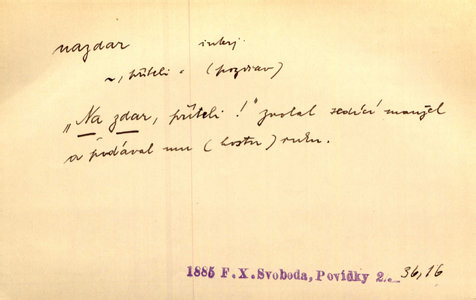 nazdar interj.
~, příteli " (pozdrav)
„Na zdar, příteli!" zvolal sedící manžel
a podával mu (hostu) ruku.
1885 F.X.Svoboda, Povídky 2. 36,16